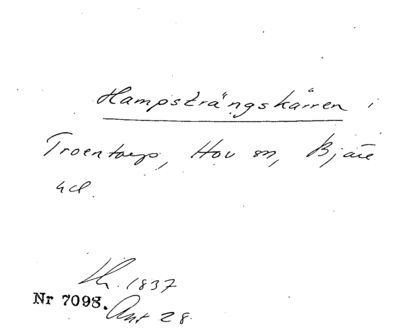 Hampsträngskärren i
Troentorp, Hov sn, Bjäre
hd.
Lh. 1837
Nr 7098. Ant 28.